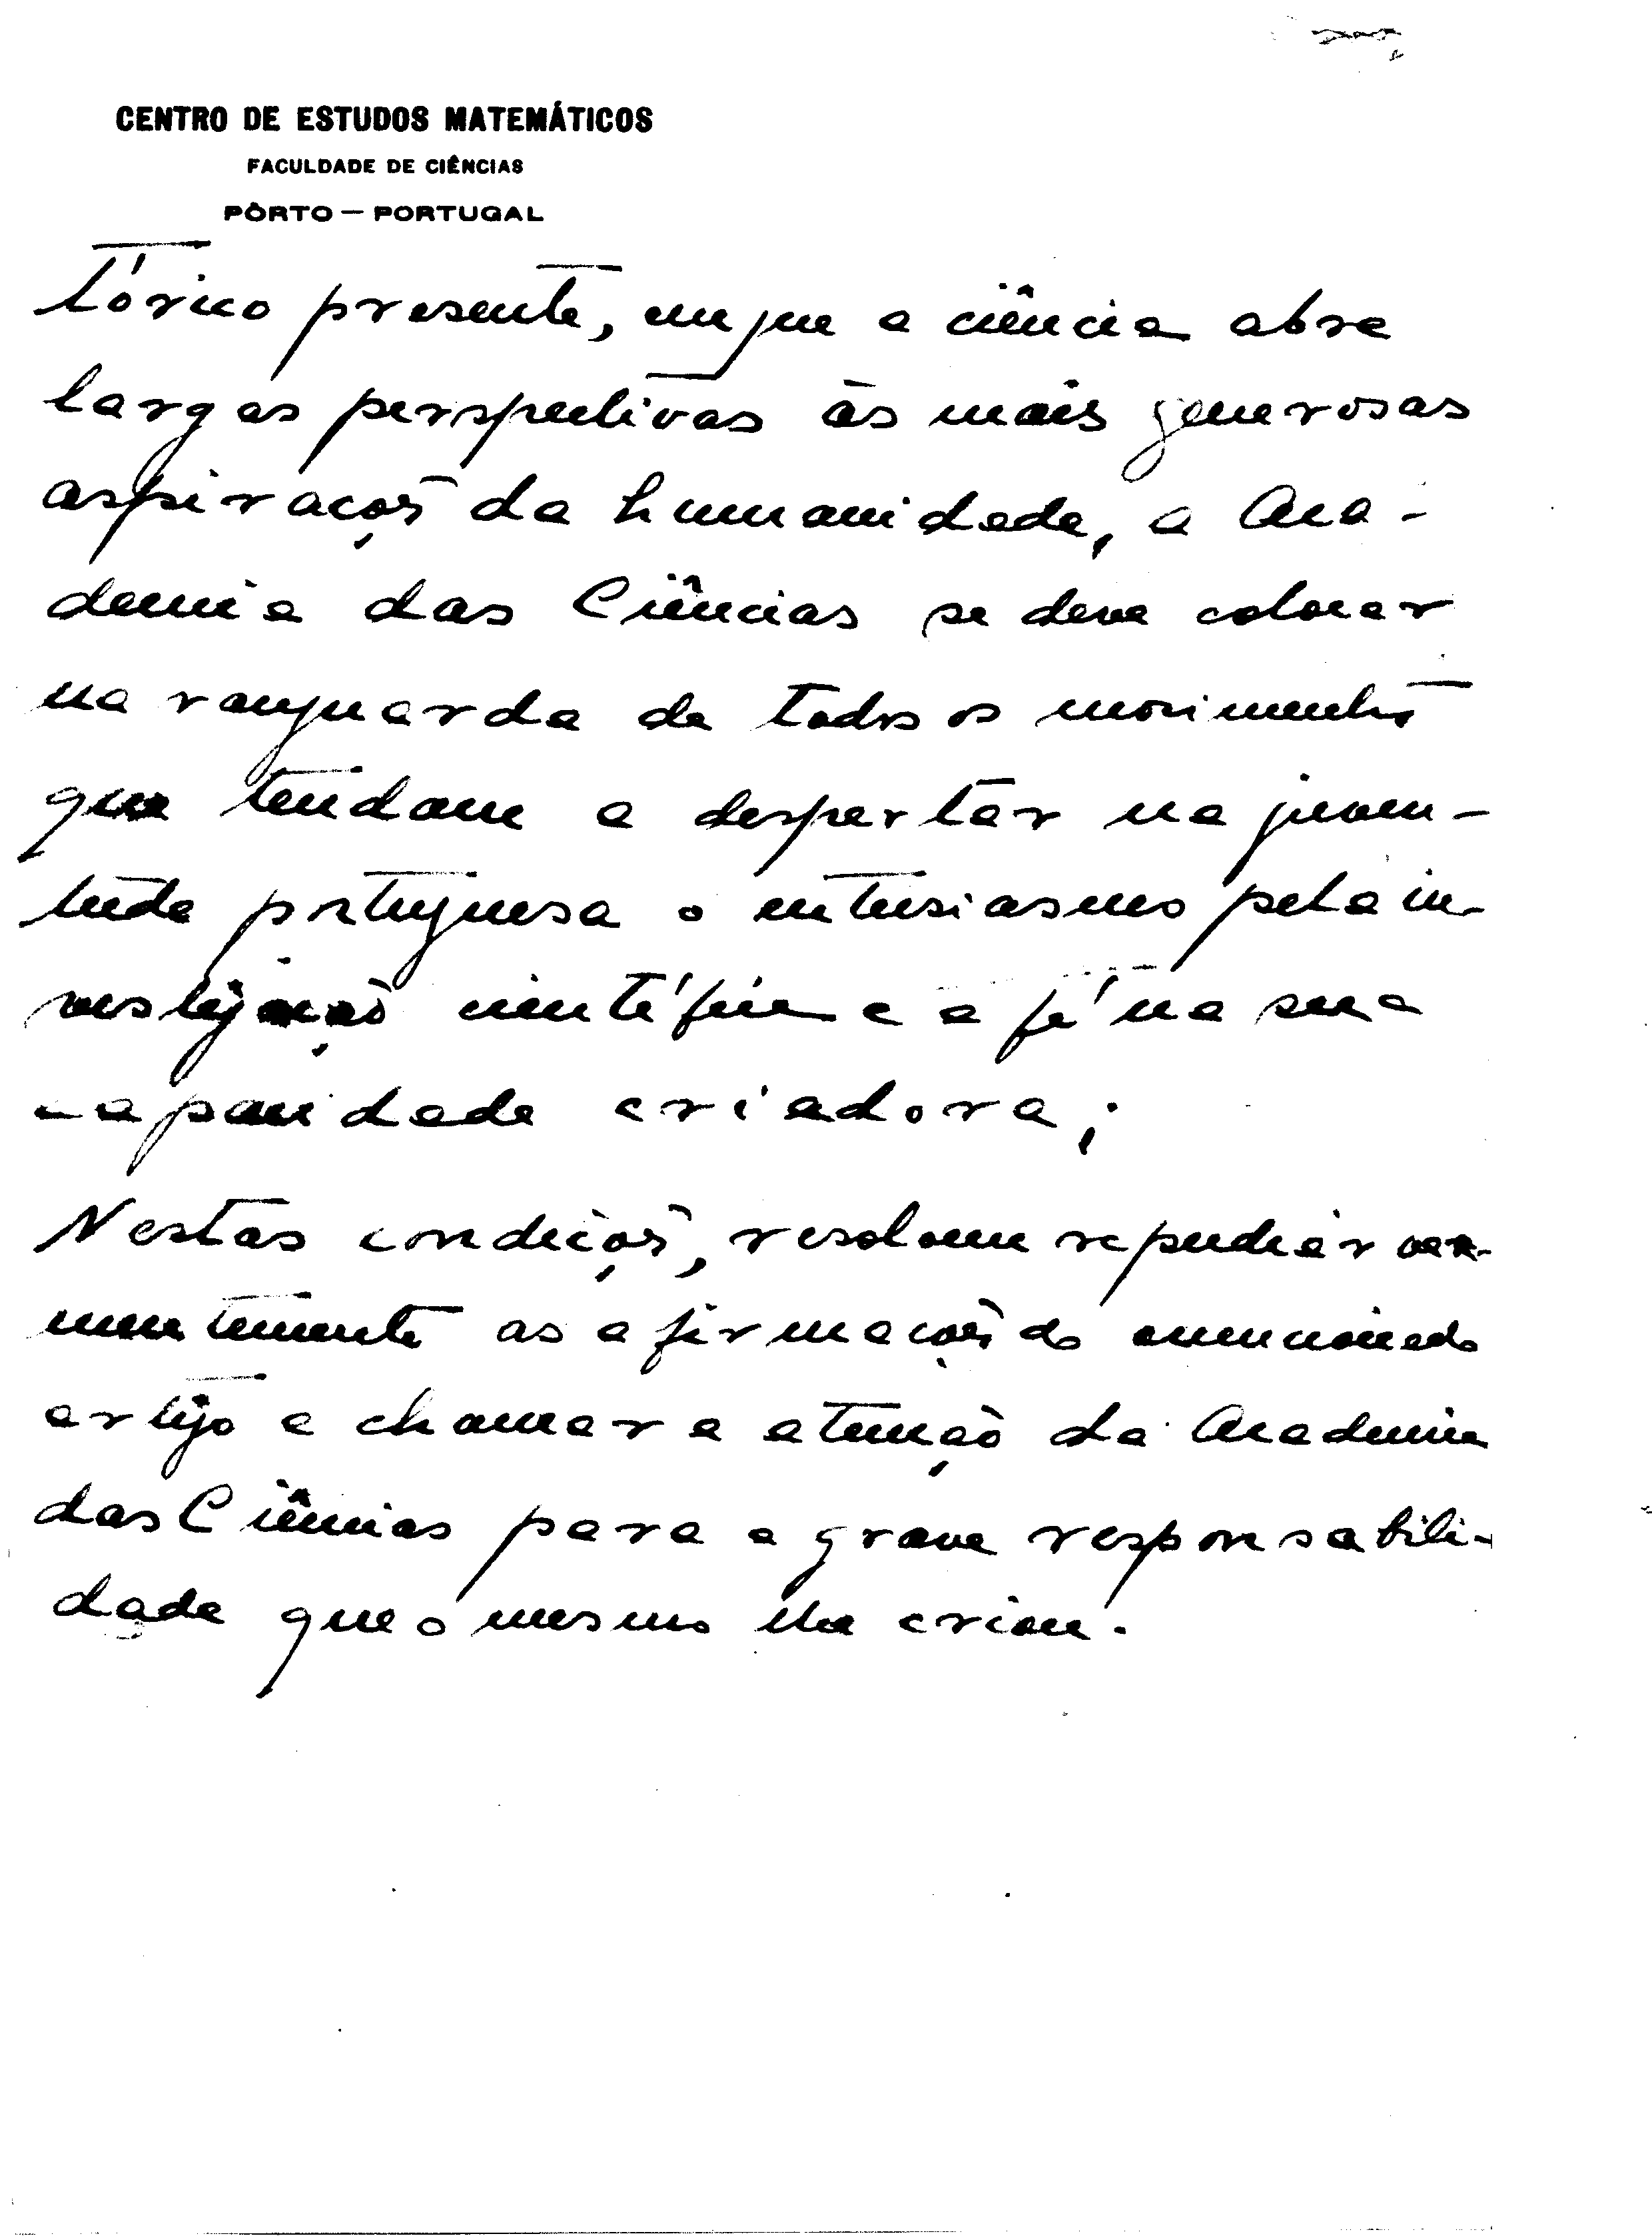 CENTRO DE ESTUDOS MATEMÁTICOS
FACULDADE DE CIÊNCIAS
PÔRTO — PORTUGAL
tórico presente, em que a ciência abre
largas perspectivas às mais generosas
aspirações da humanidade, a Aca-
demia das Ciências se deve colocar
na vanguarda de todos os movimentos
que tendam a despertar na juven-
tude portuguesa o entusiasmo pela in-
vestigação científica e a fé na sua
capacidade criadora;
Nestas condições, resolvem repudiar
as afirmações do
artigo e chamar a atenção da Academia
das Ciências para a grave responsabili-
dade que o mesmo lhe criou.